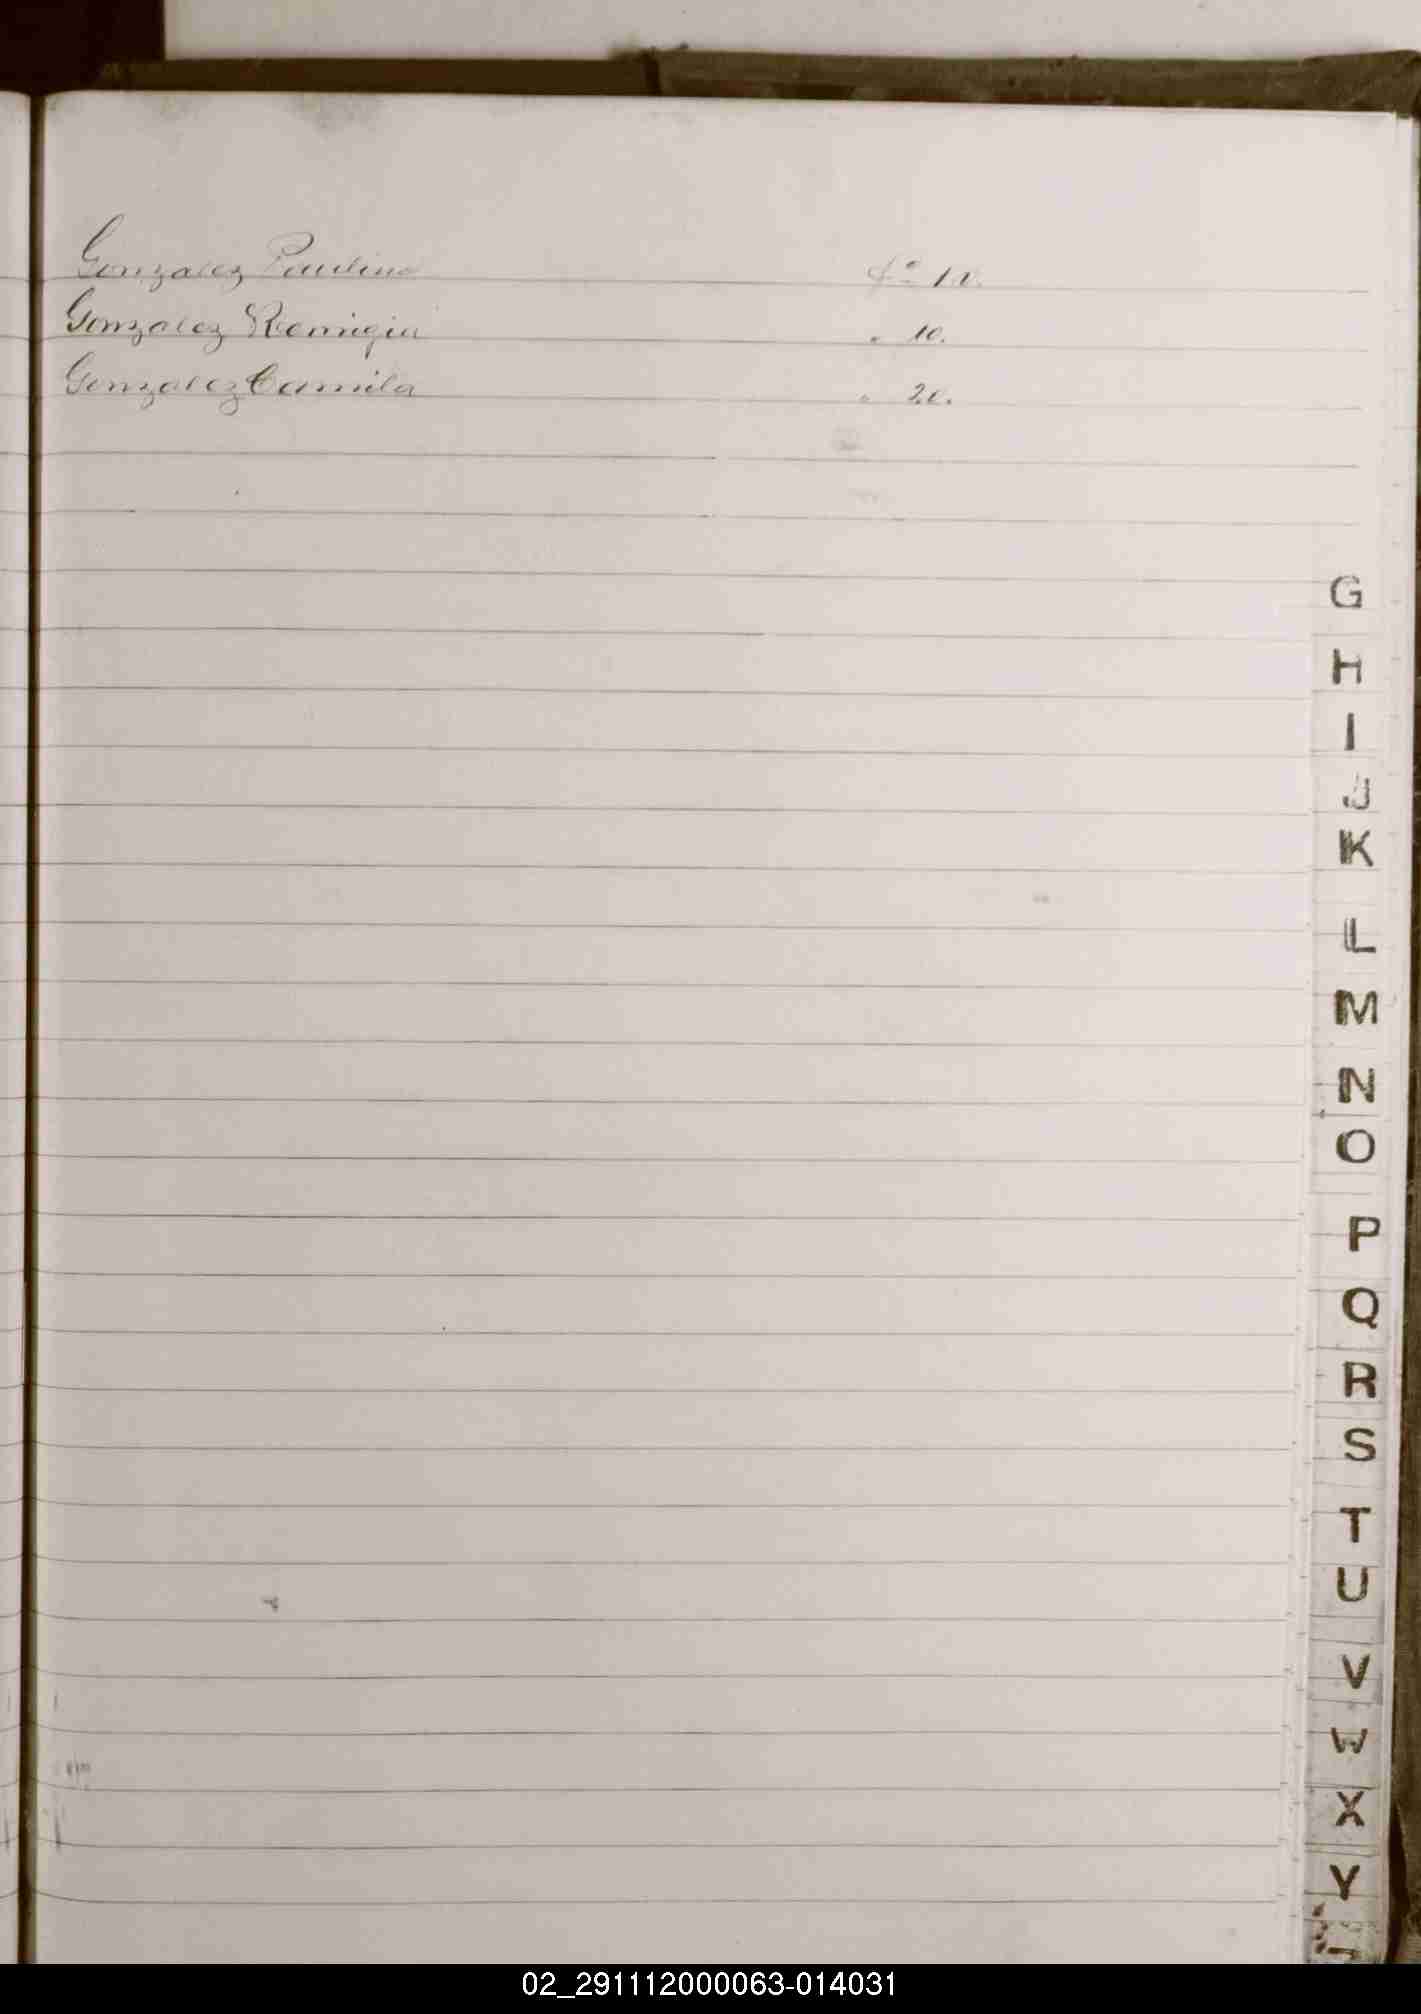 Gonzalez Paulino fº 10.
Gonzalez Remigia " 10.
Gonzalez Camila " 20.
G
H
I
J
K
L
M
N
O
P
Q
R
S
T
U
V
W
X
Y
02_291112000063-014031